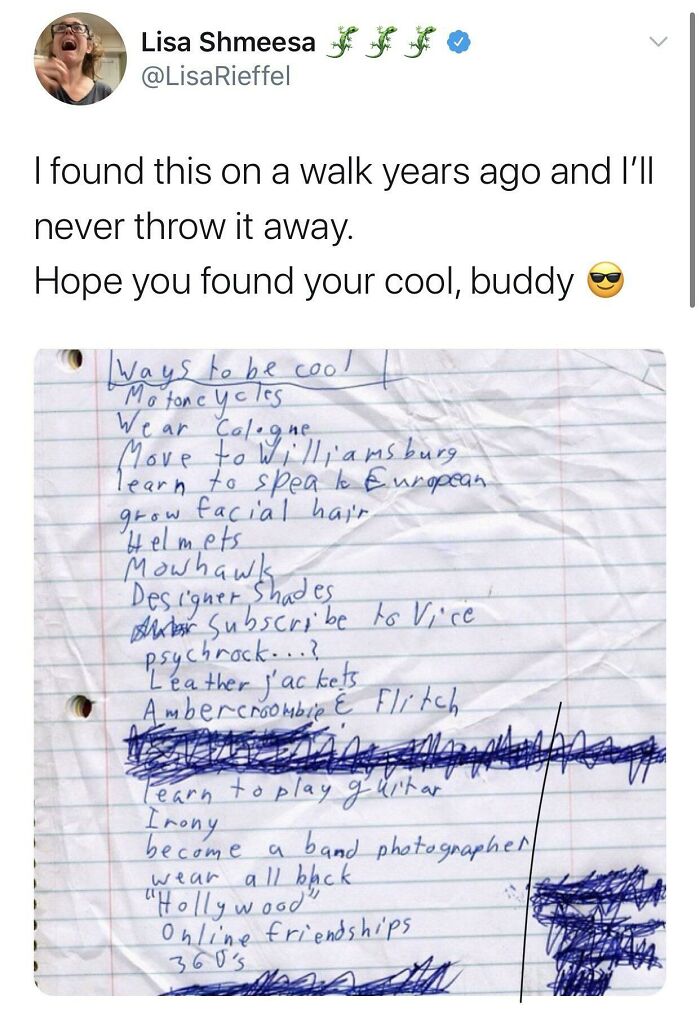 Lisa Shmeesa 🦎🦎🦎
@LisaRieffel
I found this on a walk years ago and I’ll
never throw it away.
Hope you found your cool, buddy 😎
Ways to be cool
Motorcycles
Wear Cologne
Move to Williamsburg
learn to speak European
grow facial hair
Helmets
Mowhawk
Designer Shades
Subscribe to Vice
psychrock...?
Leather jackets
Ambercroombie & Flitch
learn to play guitar
Irony
become a band photographer
wear all black
"Hollywood"
Online friendships
360's